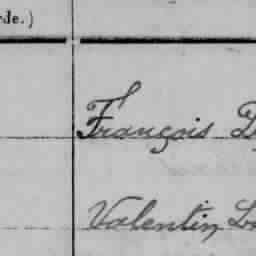 rde.)
François
Valentin